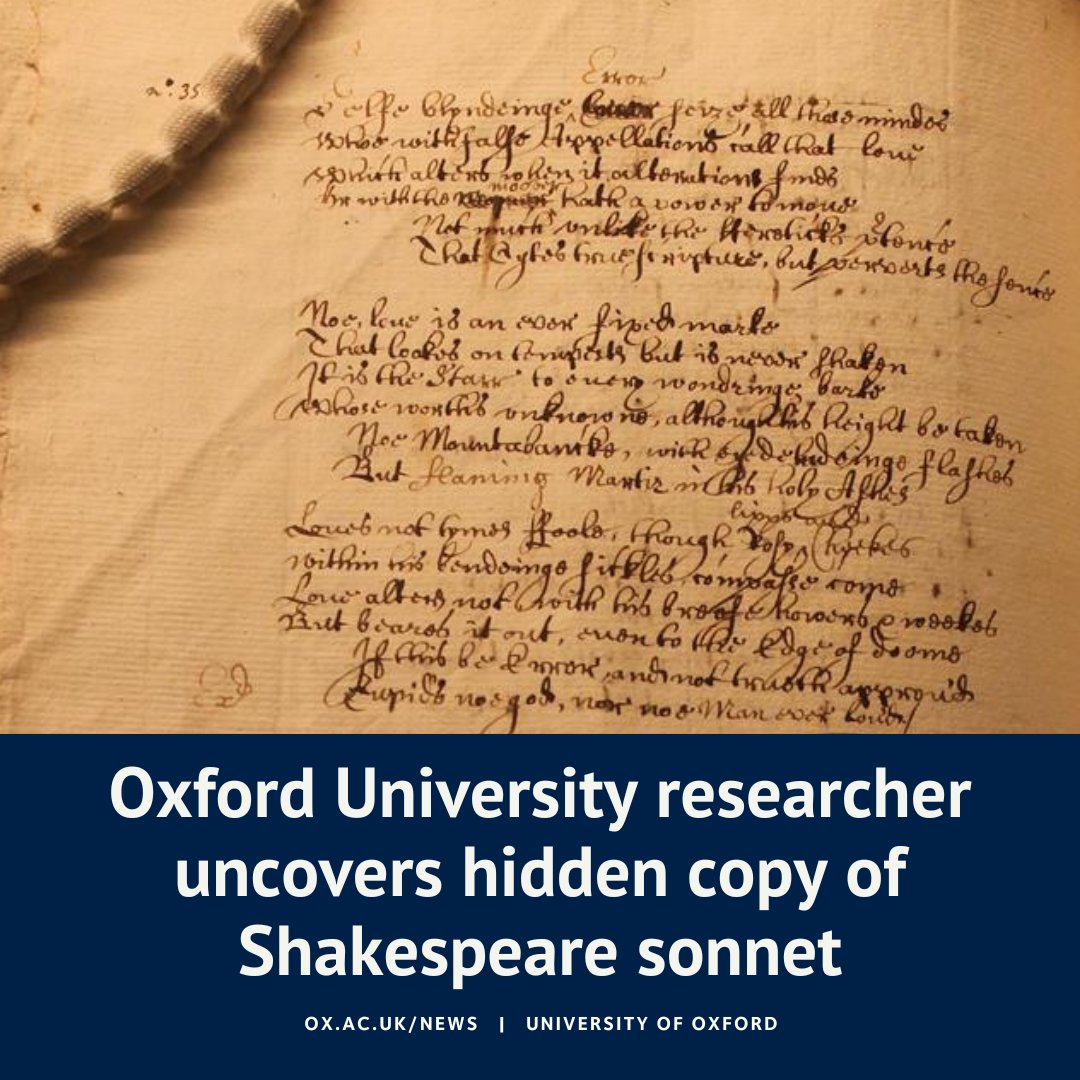 Error
n° 35
selfe blyndeinge seize all those mindes
Who with false Appellations call that love
Which alters when it alterations finds
Or with the mover hath a power to move
Not much unlike the Hereticks ptence
That Cytes true scripture, but perverts the sence
Noe, love is an ever fixed marke
That lookes on tempests but is never shaken
It is the Starr to every wondringe barke
Whose worths unknowne, although his height be taken
Noe Mountebancke, with eyedeludeinge flashes
But flaming Martir in his holy Ashes
lipps and
Loves not tymes Foole, though Rosy Cheekes
within his bendeinge sickles compasse come
Love alters not with his breife howers & weekes
But beares it out, even to the Edge of doome
If this be Error and not truth approv'd
Cupids noe god, nor noe Man ever lov'd
Oxford University researcher
uncovers hidden copy of
Shakespeare sonnet
OX.AC.UK/NEWS | UNIVERSITY OF OXFORD